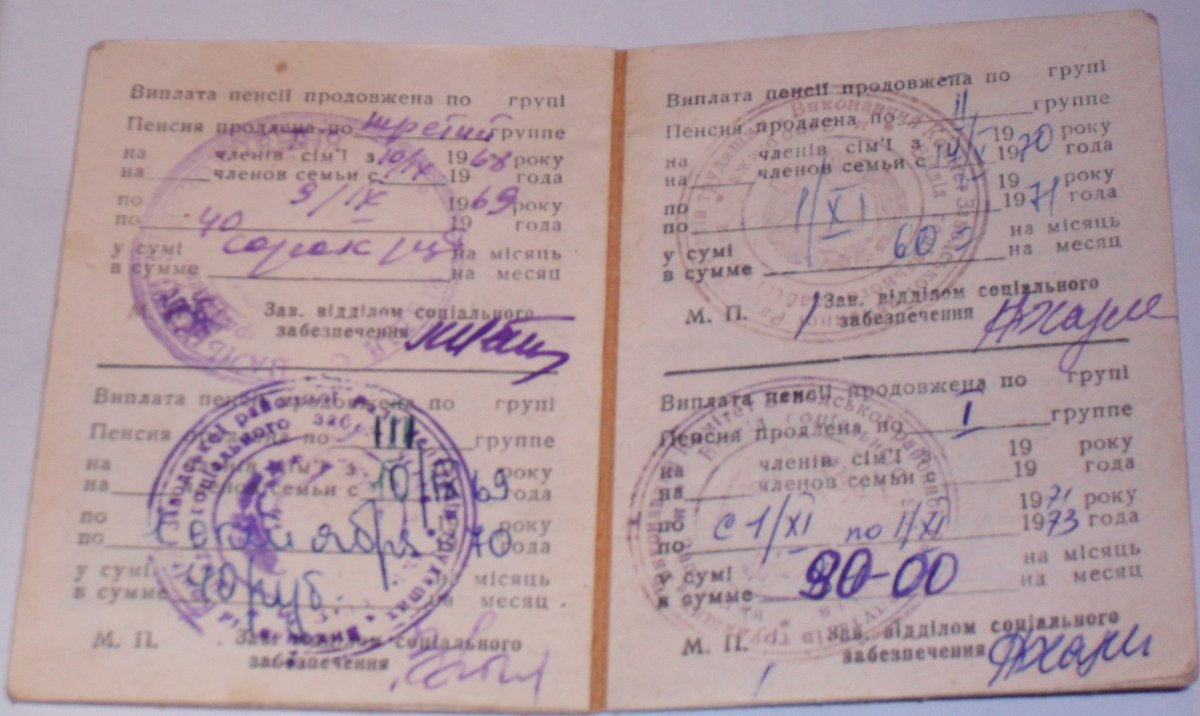 Виплата пенсії продовжена по групі
Пенсия продлена по третий группе
на членів сім'ї з 10/IX 1968 року
на членов семьи с 19 года
по 9/IX 1969 року
по 19 года
у сумі 40 на місяць
в сумме сорок на месяц
М. Зав. відділом соціального
забезпечення
Виплата пенсії продовжена по групі
Пенсия продлена по III группе
на членів сім'ї з року
на членов семьи с 10/IX 69 года
по року
по 1 октября 70 года
у сумі на місяць
в сумме 40 руб. на месяц
М. П. Зав. відділом соціального
забезпечення
Виплата пенсії продовжена по групі
Пенсия продлена по II группе
на членів сім'ї з 1970 року
на членов семьи с 19 года
по 1/XI 1971 року
по 19 года
у сумі 60 на місяць
в сумме на месяц
М. П. Зав. відділом соціального
забезпечення
Виплата пенсії продовжена по групі
Пенсия продлена по I группе
на членів сім'ї з 19 року
на членов семьи с 19 года
по с 1/XI 1971 року
по по 1/XI 1973 года
у сумі на місяць
в сумме 90-00 на месяц
М. П. Зав. відділом соціального
забезпечення